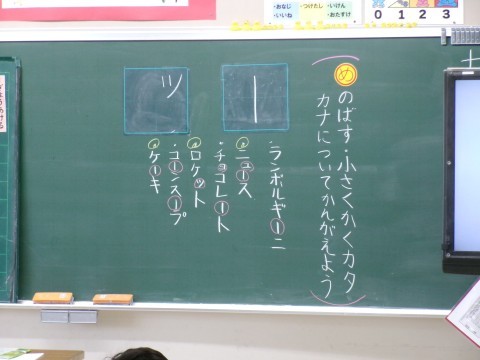 め
のばす・小さくかくカタ
カナについてかんがえよう
ー
・ランボルギーニ
②ニュース
・チョコレート
ッ
②ロケット
・コーンスープ
②ケーキ
・おなじ
・いいね
・つけたし
・いけん
・おたすけ
0 1 2 3